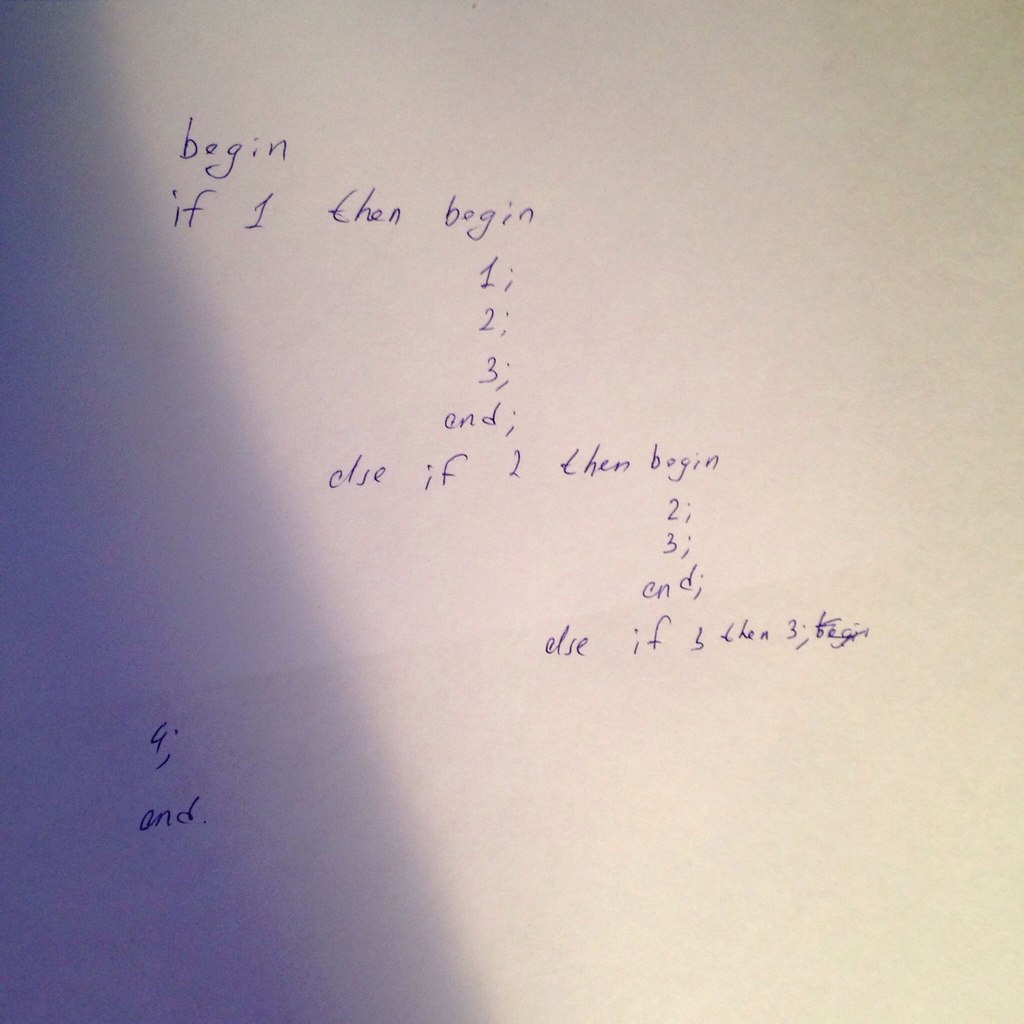 begin
if 1 then begin
1;
2;
3;
end;
else if 2 then begin
2;
3;
end;
else if 3 then 3; begin
4;
end.